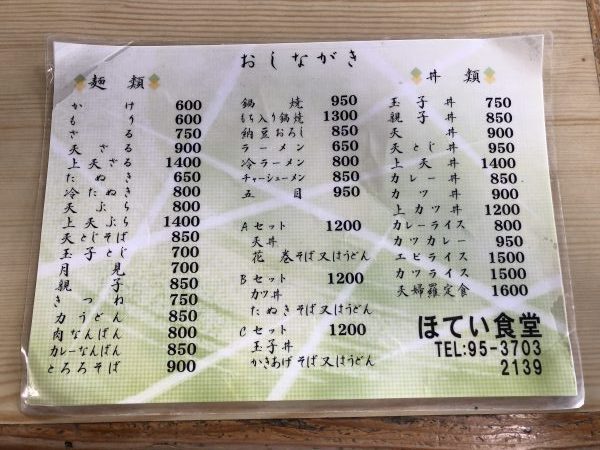 おしながき
麺類
かけ 600
もり 600
ざる 750
天ざる 900
上天ざる 1400
たぬき 650
冷たぬき 850
天ぷら 800
上天ぷら 1400
天とじそば 850
玉子とじ 700
月見 700
親子 850
きつね 750
力うどん 850
肉なんばん 800
カレーなんばん 850
とろろそば 900
鍋焼 950
もち入り鍋焼 1300
納豆おろし 850
ラーメン 650
冷ラーメン 800
チャーシューメン 850
五目 950
Aセット 1200
天丼
花巻そば又はうどん
Bセット 1200
カツ丼
たぬきそば又はうどん
Cセット 1200
玉子丼
かきあげそば又はうどん
丼類
玉子丼 750
親子丼 850
天丼 900
天とじ丼 950
上天丼 1400
カレー丼 850
カツ丼 900
上カツ丼 1200
カレーライス 800
カツカレー 950
エビライス 1500
カツライス 1500
天婦羅定食 1600
ほてい食堂
TEL:95-3703
2139